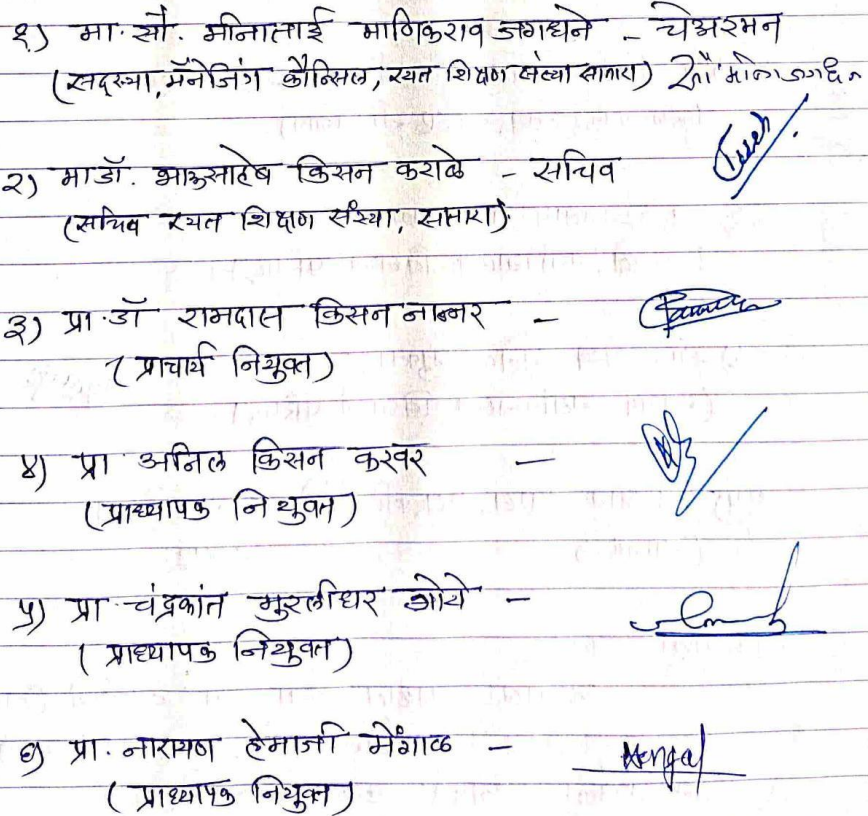 १) मा. सौ. मीनाताई माणिकराव जगधने - चेअरमन
(सदस्या, मॅनेजिंग कौन्सिल, रयत शिक्षण संस्था सातारा) सौ मीना जगधने
२) मा डॉ. भाऊसाहेब किसन कराळे - सचिव
(सचिव रयत शिक्षण संस्था, सातारा)
३) प्रा. डॉ रामदास किसन नान्नर -
(प्राचार्य नियुक्त)
४) प्रा अनिल किसन करवर -
(प्राध्यापक नियुक्त)
५) प्रा चंद्रकांत मुरलीधर ओये -
(प्राध्यापक नियुक्त)
६) प्रा. नारायण हेमाजी मेंगाळ - Mengal
(प्राध्यापक नियुक्त)